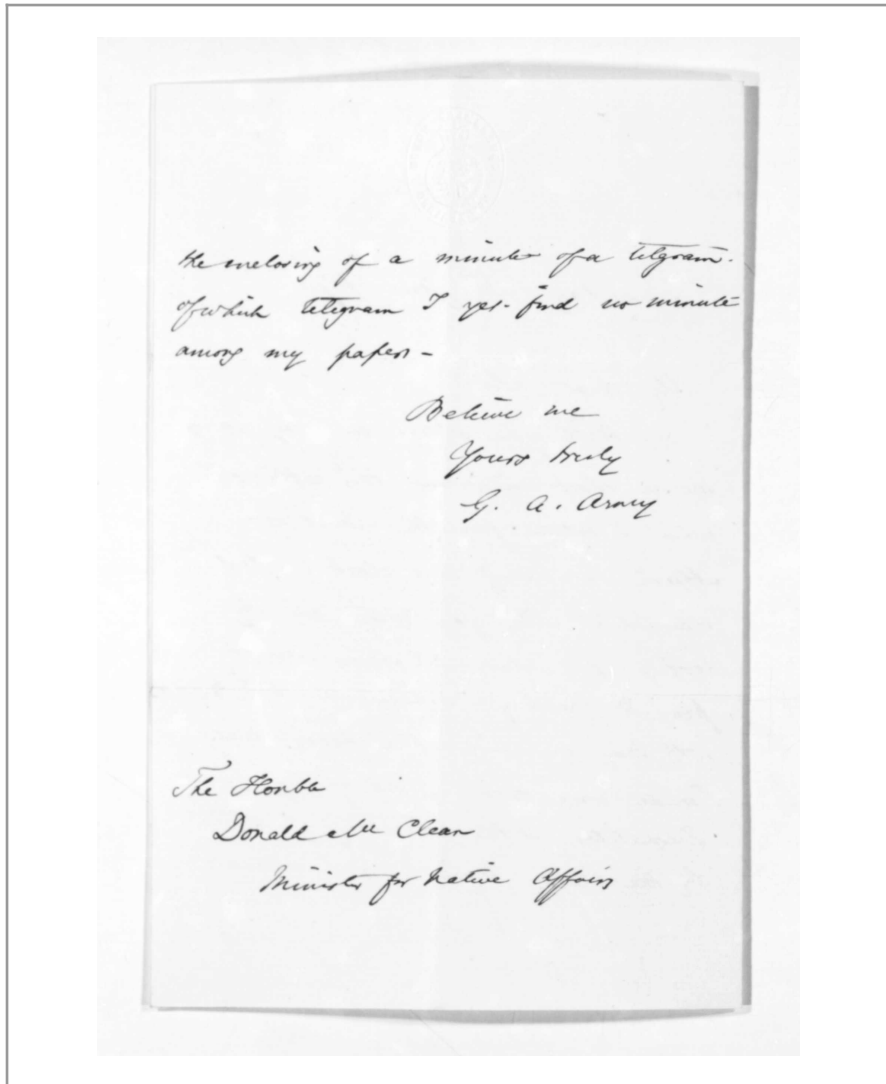 the inclosing of a minute of a telegram.
of which telegram I yet find no minute
among my papers -
Believe me
Yours truly
G. A. Arney
The Honble
Donald Mc Clean
Minister for Native Affairs